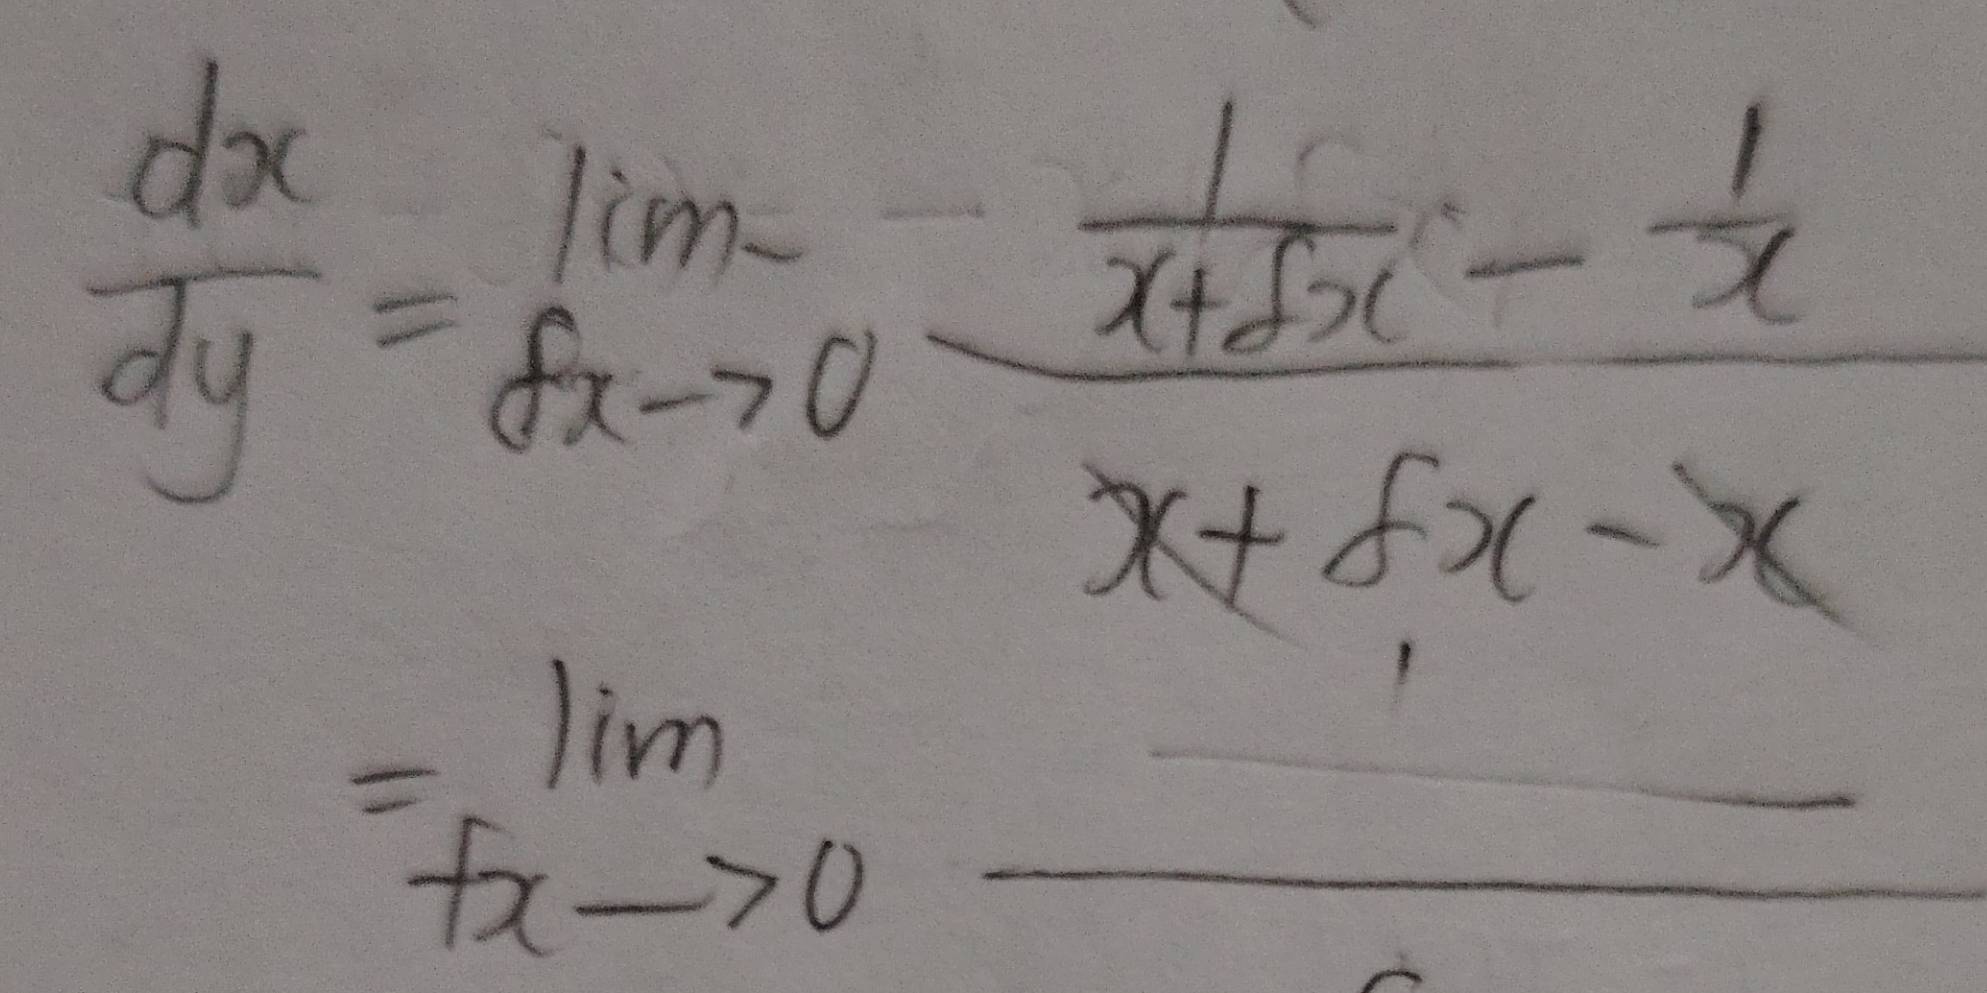 dx/dy = lim δx→0 (1/(x+δx) - 1/x)/(x+δx-x)
= lim fx→0 1